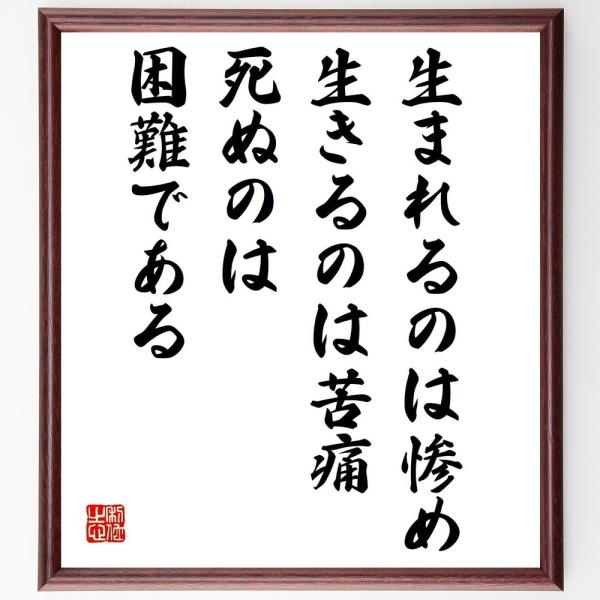 生まれるのは惨め
生きるのは苦痛
死ぬのは
困難である